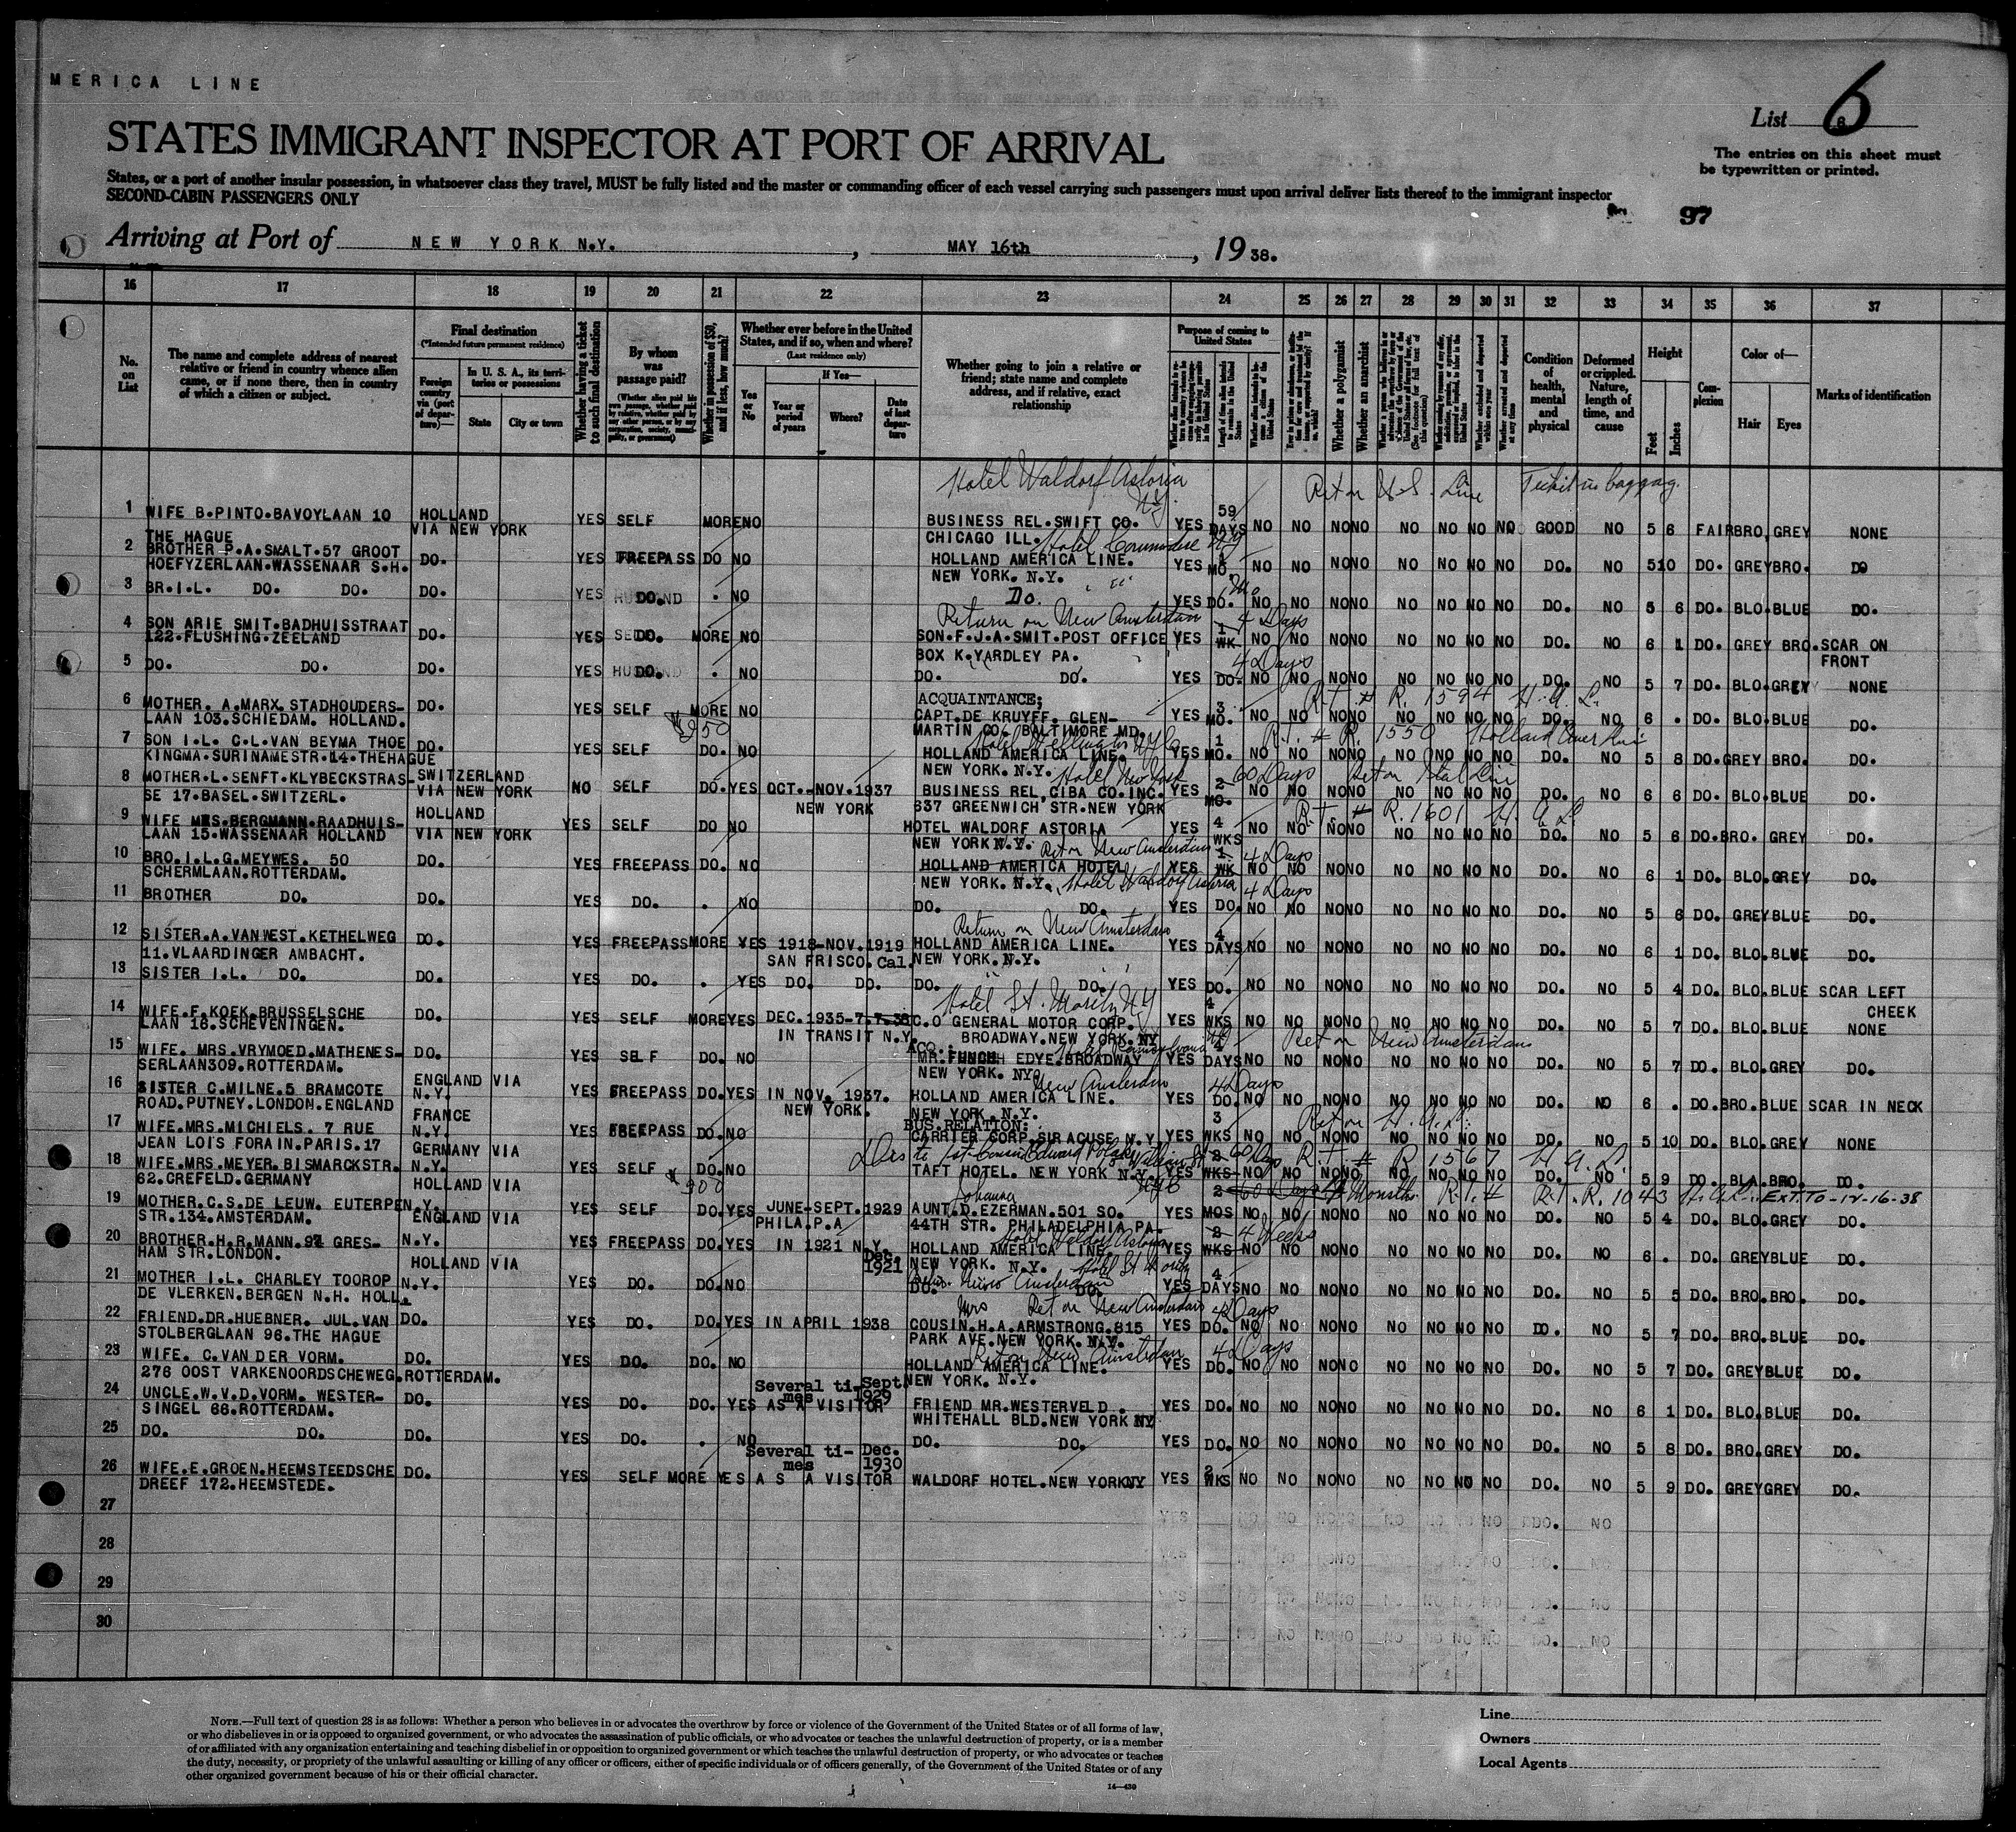 MERICA LINE
List 6
STATES IMMIGRANT INSPECTOR AT PORT OF ARRIVAL
The entries on this sheet must
be typewritten or printed.
States, or a port of another insular possession, in whatsoever class they travel, MUST be fully listed and the master or commanding officer of each vessel carrying such passengers must upon arrival deliver lists thereof to the immigrant inspector
SECOND-CABIN PASSENGERS ONLY
97
Arriving at Port of NEW YORK N.Y. , MAY 16th , 1938.
16 17 18 19 20 21 22 23 24 25 26 27 28 29 30 31 32 33 34 35 36 37
No. on List
The name and complete address of nearest relative or friend in country whence alien came, or if none there, then in country of which a citizen or subject.
Final destination
(*Intended future permanent residence)
Foreign country via (port of departure)—
In U. S. A., its territories or possessions
State
City or town
Whether having a ticket to such final destination
By whom was passage paid?
Whether in possession of $50, and if less, how much?
Whether ever before in the United States, and if so, when and where?
(Last residence only)
Yes or No
If Yes—
Year or period of years
Where?
Date of last departure
Whether going to join a relative or friend; state name and complete address, and if relative, exact relationship
Purpose of coming to United States
Whether a polygamist
Whether an anarchist
Condition of health, mental and physical
Deformed or crippled. Nature, length of time, and cause
Height
Feet
Inches
Complexion
Color of—
Hair
Eyes
Marks of identification
Hotel Waldorf Astoria N.Y. Ret on U.S. Line Ticket in baggag.
1 WIFE B.PINTO.BAVOYLAAN 10 HOLLAND VIA NEW YORK YES SELF MORE NO BUSINESS REL.SWIFT CO. YES 59 DAYS NO NO NO NO NO NO NO NO GOOD NO 5 6 FAIR BRO. GREY NONE
THE HAGUE CHICAGO ILL.
2 BROTHER P.A.SMALT.57 GROOT DO. YES FREEPASS DO NO HOLLAND AMERICA LINE. YES 1 MO. NO NO NO NO NO NO NO NO DO. NO 5 10 DO. GREY BRO. DO
HOEFYZERLAAN.WASSENAAR S.H. NEW YORK. N.Y.
3 BR.I.L. DO. DO. DO. YES DO. . NO Do. YES DO. NO NO NO NO NO NO NO NO DO. NO 5 6 DO. BLO. BLUE DO.
Return on New Amsterdam 4 Days
4 SON ARIE SMIT.BADHUISSTRAAT DO. YES DO. MORE NO SON.F.J.A.SMIT.POST OFFICE YES 1 WK NO NO NO NO NO NO NO NO DO. NO 6 1 DO. GREY BRO. SCAR ON FRONT
122.FLUSHING.ZEELAND BOX K.YARDLEY PA. 4 Days
5 DO. DO. DO. YES DO. . NO DO. DO. YES DO. NO NO NO NO NO NO NO NO DO. NO 5 7 DO. BLO. GREY NONE
ACQUAINTANCE; R.T. # R. 1594 H.A.L.
6 MOTHER. A.MARX. STADHOUDERS- DO. YES SELF MORE NO CAPT.DE KRUYFF. GLEN- YES 3 MO. NO NO NO NO NO NO NO NO DO. NO 6 . DO. BLO. BLUE DO.
LAAN 103.SCHIEDAM. HOLLAND. $950 MARTIN CO. BALTIMORE MD. R.T. # R. 1550
7 SON I.L. C.L.VAN BEYMA THOE DO. YES SELF DO. NO HOLLAND AMERICA LINE. YES 1 MO. NO NO NO NO NO NO NO NO DO. NO 5 8 DO. GREY BRO. DO.
KINGMA.SURINAMESTR.14.THEHAGUE NEW YORK. N.Y. Hotel New York 60 Days
8 MOTHER.L.SENFT.KLYBECKSTRAS- SWITZERLAND VIA NEW YORK NO SELF DO. YES OCT.-NOV.1937 NEW YORK BUSINESS REL,CIBA CO.INC. YES 2 MO. NO NO NO NO NO NO NO NO DO. NO 6 6 DO. BLO. BLUE DO.
SE 17.BASEL.SWITZERL. 637 GREENWICH STR.NEW YORK R.T. # R.1601 H.A.L.
9 WIFE MRS.BERGMANN.RAADHUIS- HOLLAND VIA NEW YORK YES SELF DO NO HOTEL WALDORF ASTORIA YES 4 WKS NO NO NO NO NO NO NO NO DO. NO 5 6 DO. BRO. GREY DO.
LAAN 15.WASSENAAR HOLLAND NEW YORK N.Y. Ret on New Amsterdam 4 Days
10 BRO.I.L.G.MEYWES. 50 DO. YES FREEPASS DO. NO HOLLAND AMERICA HOTEL YES 1 WK NO NO NO NO NO NO NO NO DO. NO 6 1 DO. BLO. GREY DO.
SCHERMLAAN.ROTTERDAM. NEW YORK. N.Y. Hotel Waldorf Astoria 4 Days
11 BROTHER DO. DO. YES DO. . NO DO. DO. YES DO. NO NO NO NO NO NO NO NO DO. NO 5 6 DO. GREY BLUE DO.
Return on New Amsterdam
12 SISTER.A.VANWEST.KETHELWEG DO. YES FREEPASS MORE YES 1918-NOV.1919 HOLLAND AMERICA LINE. YES 4 DAYS NO NO NO NO NO NO NO NO DO. NO 6 1 DO. BLO. BLUE DO.
11.VLAARDINGER AMBACHT. SAN FRISCO.Cal. NEW YORK.N.Y.
13 SISTER I.L. DO. DO. YES DO. . YES DO. DO. DO. DO. YES DO. NO NO NO NO NO NO NO NO DO. NO 5 4 DO. BLO. BLUE SCAR LEFT CHEEK
Hotel St. Moritz N.Y
14 WIFE.F.KOEK.BRUSSELSCHE DO. YES SELF MORE YES DEC.1935-7.7.36 C.O GENERAL MOTOR CORP. YES 4 WKS NO NO NO NO NO NO NO NO DO. NO 5 7 DO. BLO. BLUE NONE
LAAN 18.SCHEVENINGEN. IN TRANSIT N.Y. BROADWAY.NEW YORK.NY Ret on New Amsterdam
15 WIFE. MRS.VRYMOED.MATHENES- DO. YES SELF DO. NO EDYE.BROADWAY YES 4 DAYS NO NO NO NO NO NO NO NO DO. NO 5 7 DO. BLO. GREY DO.
SERLAAN309.ROTTERDAM. NEW YORK. NY. New Amsterdam 4 Days
16 SISTER C.MILNE.5 BRAMCOTE ENGLAND VIA N.Y. YES FREEPASS DO. YES IN NOV. 1937. NEW YORK. HOLLAND AMERICA LINE. YES DO. NO NO NO NO NO NO NO NO DO. NO 6 . DO. BRO. BLUE SCAR IN NECK
ROAD.PUTNEY.LONDON.ENGLAND NEW YORK.N.Y.
BUS.RELATION: Ret on H.A.L.
17 WIFE.MRS.MICHIELS. 7 RUE FRANCE N.Y. YES FREEPASS DO. NO CARRIER CORP.SIRACUSE N.Y YES 3 WKS NO NO NO NO NO NO NO NO DO. NO 5 10 DO. BLO. GREY NONE
JEAN LOIS FORAIN.PARIS.17 R.T. # R 1567 H.A.L.
18 WIFE.MRS.MEYER.BISMARCKSTR. GERMANY VIA N.Y. YES SELF DO. NO TAFT HOTEL. NEW YORK N.Y. YES 2 WKS NO NO NO NO NO NO NO NO DO. NO 5 9 DO. BLA. BRO. DO.
62.CREFELD.GERMANY $300 R.T. # R.T. R. 1043 H.A.L. EXT.TO-12-16-38
19 MOTHER.C.S.DE LEUW. EUTERPEN HOLLAND VIA N.Y. YES SELF DO. YES JUNE-SEPT.1929 PHILA.P.A Johanna AUNT.D.EZERMAN.501 SO. YES 2 MOS NO NO NO NO NO NO NO NO DO. NO 5 4 DO. BLO. GREY DO.
STR.134.AMSTERDAM. 44TH STR. PHILADELPHIA PA. 4 Weeks
20 BROTHER.H.R.MANN.91 GRES- ENGLAND VIA N.Y. YES FREEPASS DO. YES IN 1921 N.Y. Dec. 1921 HOLLAND AMERICA LINE. YES 2 WKS NO NO NO NO NO NO NO NO DO. NO 6 . DO. GREY BLUE DO.
HAM STR.LONDON. NEW YORK. N.Y.
21 MOTHER I.L. CHARLEY TOOROP HOLLAND VIA N.Y. YES DO. DO. NO DO. DO. YES 4 DAYS NO NO NO NO NO NO NO NO DO. NO 5 5 DO. BRO. BRO. DO.
DE VLERKEN.BERGEN N.H. HOLL. Mrs Ret on New Amsterdam 4 Days
22 FRIEND.DR.HUEBNER. JUL.VAN DO. YES DO. DO. YES IN APRIL 1938 COUSIN.H.A.ARMSTRONG.815 YES DO. NO NO NO NO NO NO NO NO DO. NO 5 7 DO. BRO. BLUE DO.
STOLBERGLAAN 96.THE HAGUE PARK AVE.NEW YORK. N.Y. Ret on New Amsterdam 4 Days
23 WIFE. C.VAN DER VORM. DO. YES DO. DO. NO HOLLAND AMERICA LINE. YES DO. NO NO NO NO NO NO NO NO DO. NO 5 7 DO. GREY BLUE DO.
276 OOST VARKENOORDSCHEWEG.ROTTERDAM. NEW YORK. N.Y.
24 UNCLE.W.V.D.VORM. WESTER- DO. YES DO. DO. YES Several times AS A VISITOR Sept. 1929 FRIEND MR.WESTERVELD . YES DO. NO NO NO NO NO NO NO NO DO. NO 6 1 DO. BLO. BLUE DO.
SINGEL 66.ROTTERDAM. WHITEHALL BLD.NEW YORK NY
25 DO. DO. DO. YES DO. . NO DO. DO. YES DO. NO NO NO NO NO NO NO NO DO. NO 5 8 DO. BRO. GREY DO.
26 WIFE.E.GROEN.HEEMSTEEDSCHE DO. YES SELF MORE YES Several times AS A VISITOR Dec. 1930 WALDORF HOTEL.NEW YORK NY YES 2 WKS NO NO NO NO NO NO NO NO DO. NO 5 9 DO. GREY GREY DO.
DREEF 172.HEEMSTEDE.
27
28
29
30
NOTE.—Full text of question 28 is as follows: Whether a person who believes in or advocates the overthrow by force or violence of the Government of the United States or of all forms of law,
or who disbelieves in or is opposed to organized government, or who advocates the assassination of public officials, or who advocates or teaches the unlawful destruction of property, or is a member
of or affiliated with any organization entertaining and teaching disbelief in or opposition to organized government or which teaches the unlawful destruction of property, or who advocates or teaches
the duty, necessity, or propriety of the unlawful assaulting or killing of any officer or officers, either of specific individuals or of officers generally, of the Government of the United States or of any
other organized government because of his or their official character.
14—430
Line
Owners
Local Agents